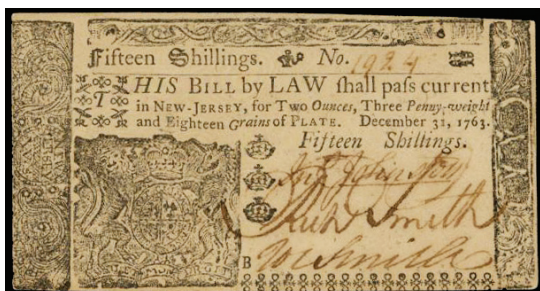 Fifteen Shillings. No. 1924
THIS BILL by LAW ſhall paſs current
in NEW-JERSEY, for Two Ounces, Three Penny-weight
and Eighteen Grains of PLATE. December 31, 1763.
Fifteen Shillings.
Johnston
Rich Smith
B
Smith